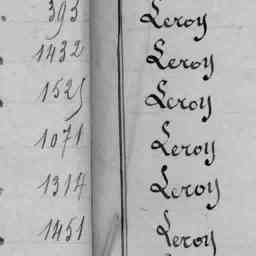 393 Leroy
1432 Leroy
1525 Leroy
1071 Leroy
1314 Leroy
1451 Leroy